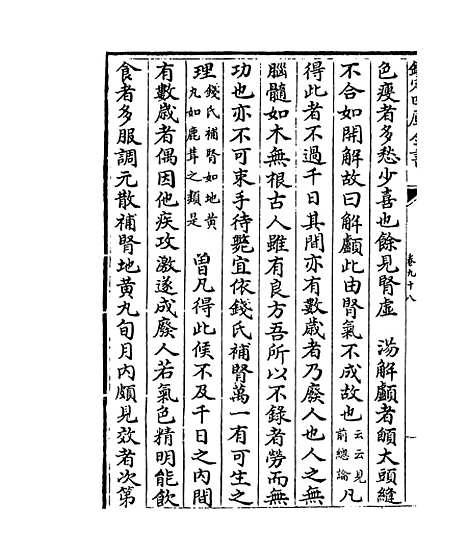 欽定四庫全書
卷九十八
色瘦者多愁少喜也餘見腎虚 湯解顱者頗大頭縫
不合如開解故曰解顱此由腎氣不成故也云云見前總論凡
得此者不過千日其間亦有數歳者乃廢人也人之無
腦髓如木無根古人雖有良方吾所以不錄者勞而無
功也亦不可束手待斃宜依錢氏補腎萬一有可生之
理錢氏補腎如地黄丸如鹿茸之類是 曽凡得此候不及千日之内間
有數歳者偶因他疾攻激遂成廢人若氣色精明能飲
食者多服調元散補腎地黄丸旬月内頗見效者次第